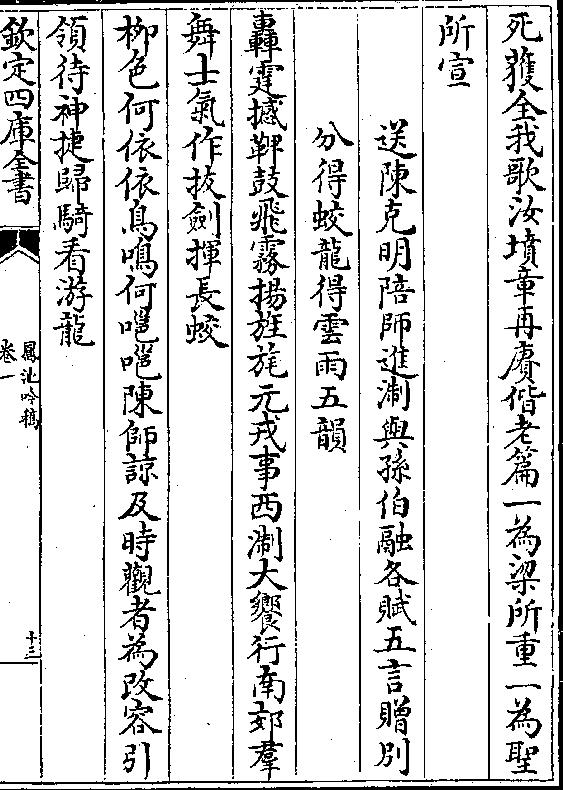 死獲全我歌汝墳章再賡偕老篇一為梁所重一為聖
所宣
送陳克明陪師進淛與孫伯融各賦五言贈別
分得蛟龍得雲雨五韻
轟霆撼鞞鼓飛霧揚旌旄元戎事西淛大饗行南郊羣
舞士氣作抜劍揮長蛟
柳色何依依鳥鳴何嗈嗈陳師諒及時觀者為改容引
領待神捷歸騎看游龍
欽定四庫全書
鳳池吟稿
卷一
十三